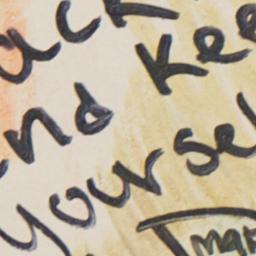 uck
and Kee
yoursel
ma